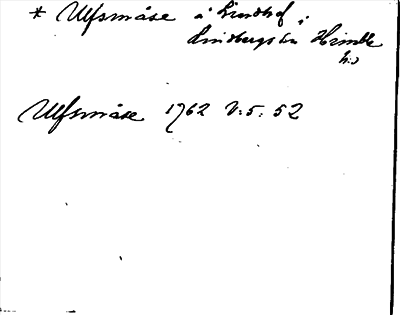 * Ulfsmåse å Lindhof i
Lindbergs sn Himble
hd
Ulfsmåse 1762 V: 5: 52